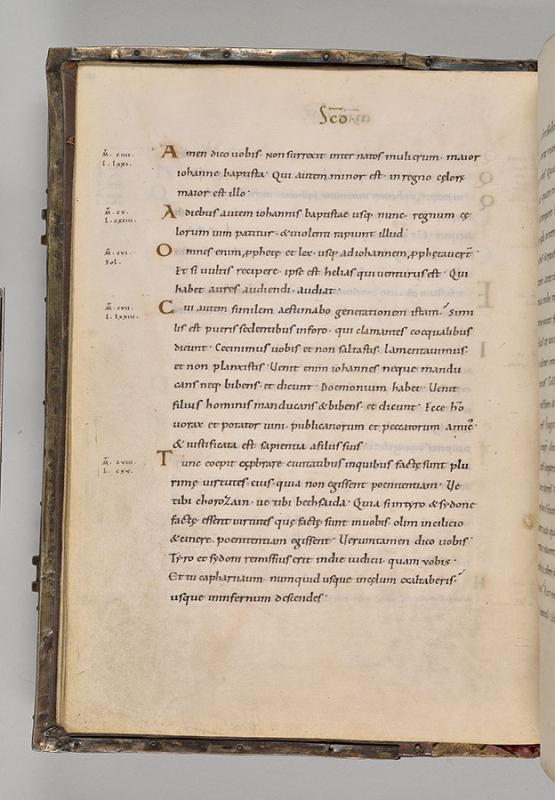 Scd̄
m̄. ciiii.
l. lxxi.
Amen dico uobis. Non surrexit inter natos mulierum. maior
iohanne baptista. Qui autem minor est. in regno cęlorx̄
maior est illo.
m̄. cv.
l. cxciii.
A diebus autem iohannis baptistae usq; nunc. regnum cę
lorum uim patitur. & uiolenti rapiunt illud.
m̄. cvi.
Sol.
Omnes enim p̱phetę et lex. usq; ad iohannem, p̱phetauert̄.
Et si uultis recipere. ipse est helias qui uenturus est. Qui
habet aures audiendi. audiat.
m̄. cvii.
l. lxxiii.
Cui autem similem aestimabo generationem istam. Simi
lis est pueris sedentibus inforo. qui clamantes coequalibus
dicunt. Cecinimus uobis et non saltastis. lamentauimus.
et non planxistis. Uenit enim iohannes neque mandu
cans neq; bibens. et dicunt. Daemonium habet. Uenit
filius hominis manducans & bibens. et dicunt. Ecce hō
uorax et potator uini. publicanorum et peccatorum amic᾿.
& iustificata est sapientia afiliis suis.
m̄. cviii.
l. cxv.
Tunc coepit exprobrare ciuitatibus inquibus factę sunt plu
rimę uirtutes eius. quia non egissent poenitentiam. Ue
tibi chorozain. ue tibi bethsaida. Quia si intyro & sydone
factę essent uirtutes quę factę sunt inuobis. olim incilicio
& cinere. poenitentiam egissent. Uerumtamen dico uobis.
Tyro et sydoni remissius erit indie iudicii. quam vobis.
Et tu capharnaum. numquid usque incęlum exaltaberis.
usque ininfernum descendes.